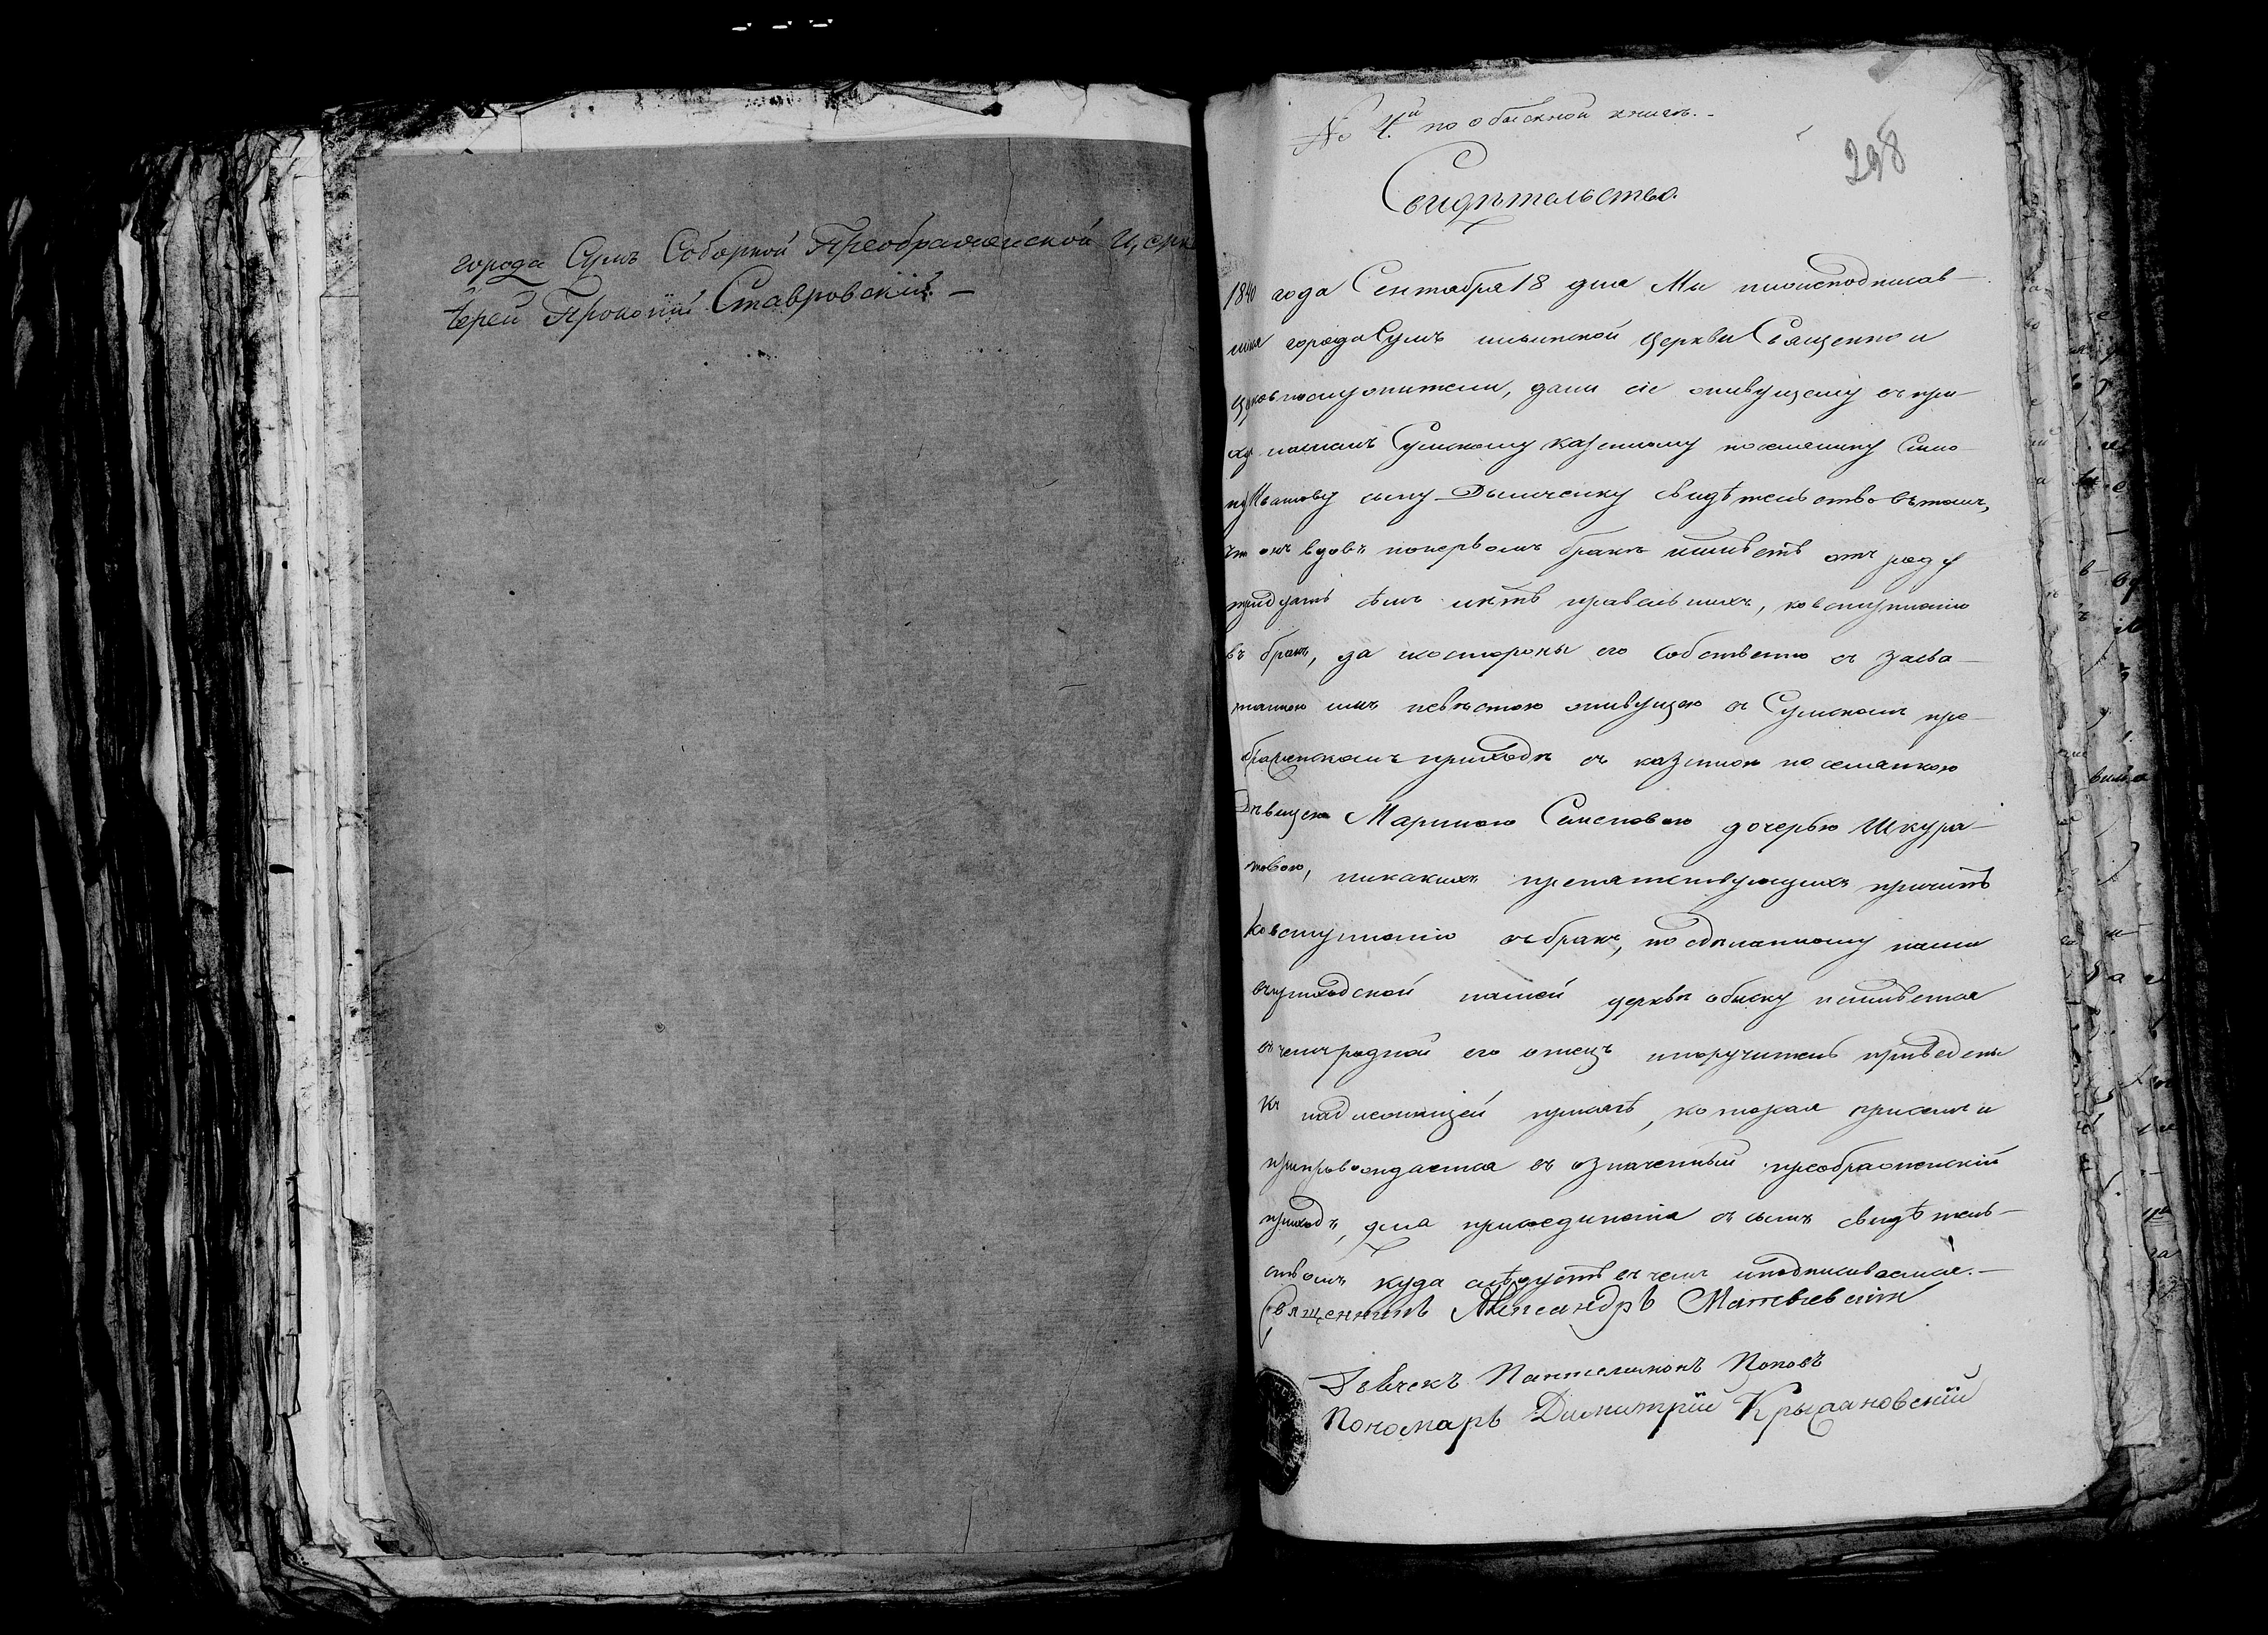 города Сумъ Соборной Преображенской Церк
Іерей Прокопій Ставровскій. —
№ 4.й по обыскной книгѣ. -
298
Свидѣтельство.
1840 года Сентября 18 дня Мы нижеподписав-
шіе города Сумъ ильинской церкви Священно и
церковнослужители, дали сіе живущему въ при-
ходѣ нашемъ Сумскому казенному поселянину
Иванову сыну Дымченку свидѣтельство въ томъ,
что онъ вдовъ поперьвомъ бракѣ имѣетъ отъ роду
тридцать семь лѣтъ правильныхъ, ко вступленію
въ бракъ, да и состороны его собственно съ засва-
танною имъ невѣстою живущею въ Сумскомъ пре-
ображенскомъ приходѣ съ казенною поселянкою
Дѣвицею Мариною Семеновою дочерью Шкура-
товою, никакихъ препятствующихъ причинъ
Ко вступленію въ бракъ, по сдѣланному нами
въ приходской нашей церквѣ обыску неимѣется
въ чемъ родной его отецъ и поручители приведены
къ надлежащей присягѣ, которая при семъ и
припровождается въ означенный преображенскій
приходъ, для присоединенія съ симъ свидѣтель-
ствомъ куда слѣдуетъ въ чемъ и подписываемся. —
Священникъ Александръ Матвѣевскій
Дьячекъ Пантелимонъ Поповъ
Пономарь Димитрій Крыжановскій